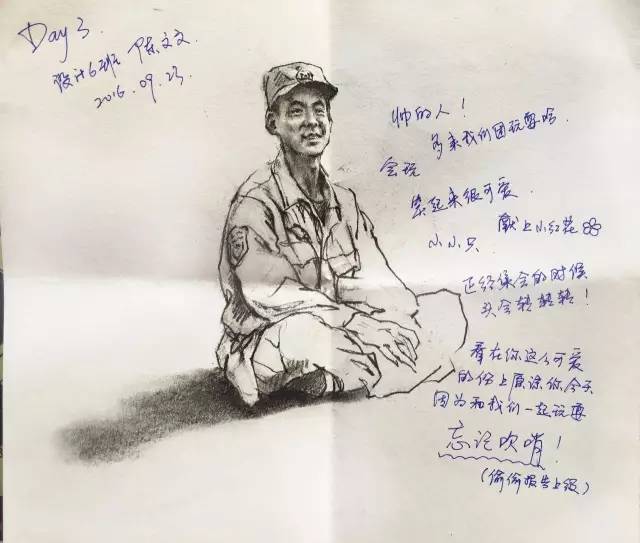 Day 3.
设计6班 陈文文
2016.09.23
帅的人！
多来我们团玩耍哈.
会玩
笑起来很可爱.
献上小红花
小小只
正经集会的时候
头会转转转！
看在你这么可爱
的份上原谅你今天
因为和我们一起玩耍
忘记吹哨！
(偷偷报告上级)